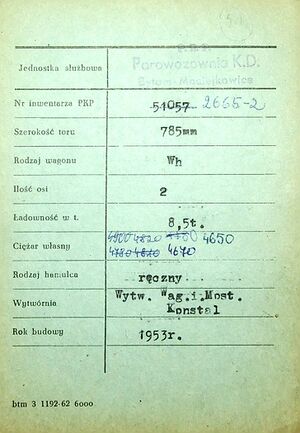 P.K.P.
Jednostka służbowa Parowozownia K.D.
Bytom-Maciejkowice
Nr inwentarza PKP 51057 2665-2
Szerokość toru 785mm
Rodzaj wagonu Wh
Ilość osi 2
Ładowność w t. 8,5t.
4900 4820 4780 4650
Ciężar własny 4780 4820 4670
Rodzaj hamulca ręczny
Wytwórnia Wytw. Wag.i.Most.
Konstal
Rok budowy 1953r.
btm 3 1192-62 6000